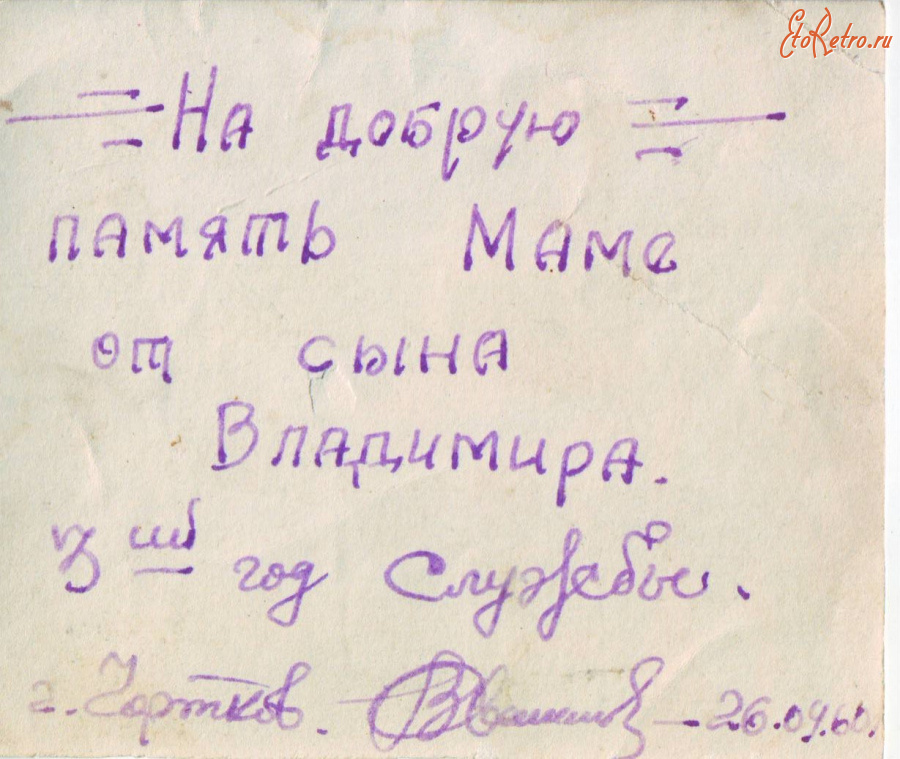 EtoRetro.ru
На добрую
память Маме
от сына
Владимира.
3ий год Службы.
г. Чортков. 26.09.60.